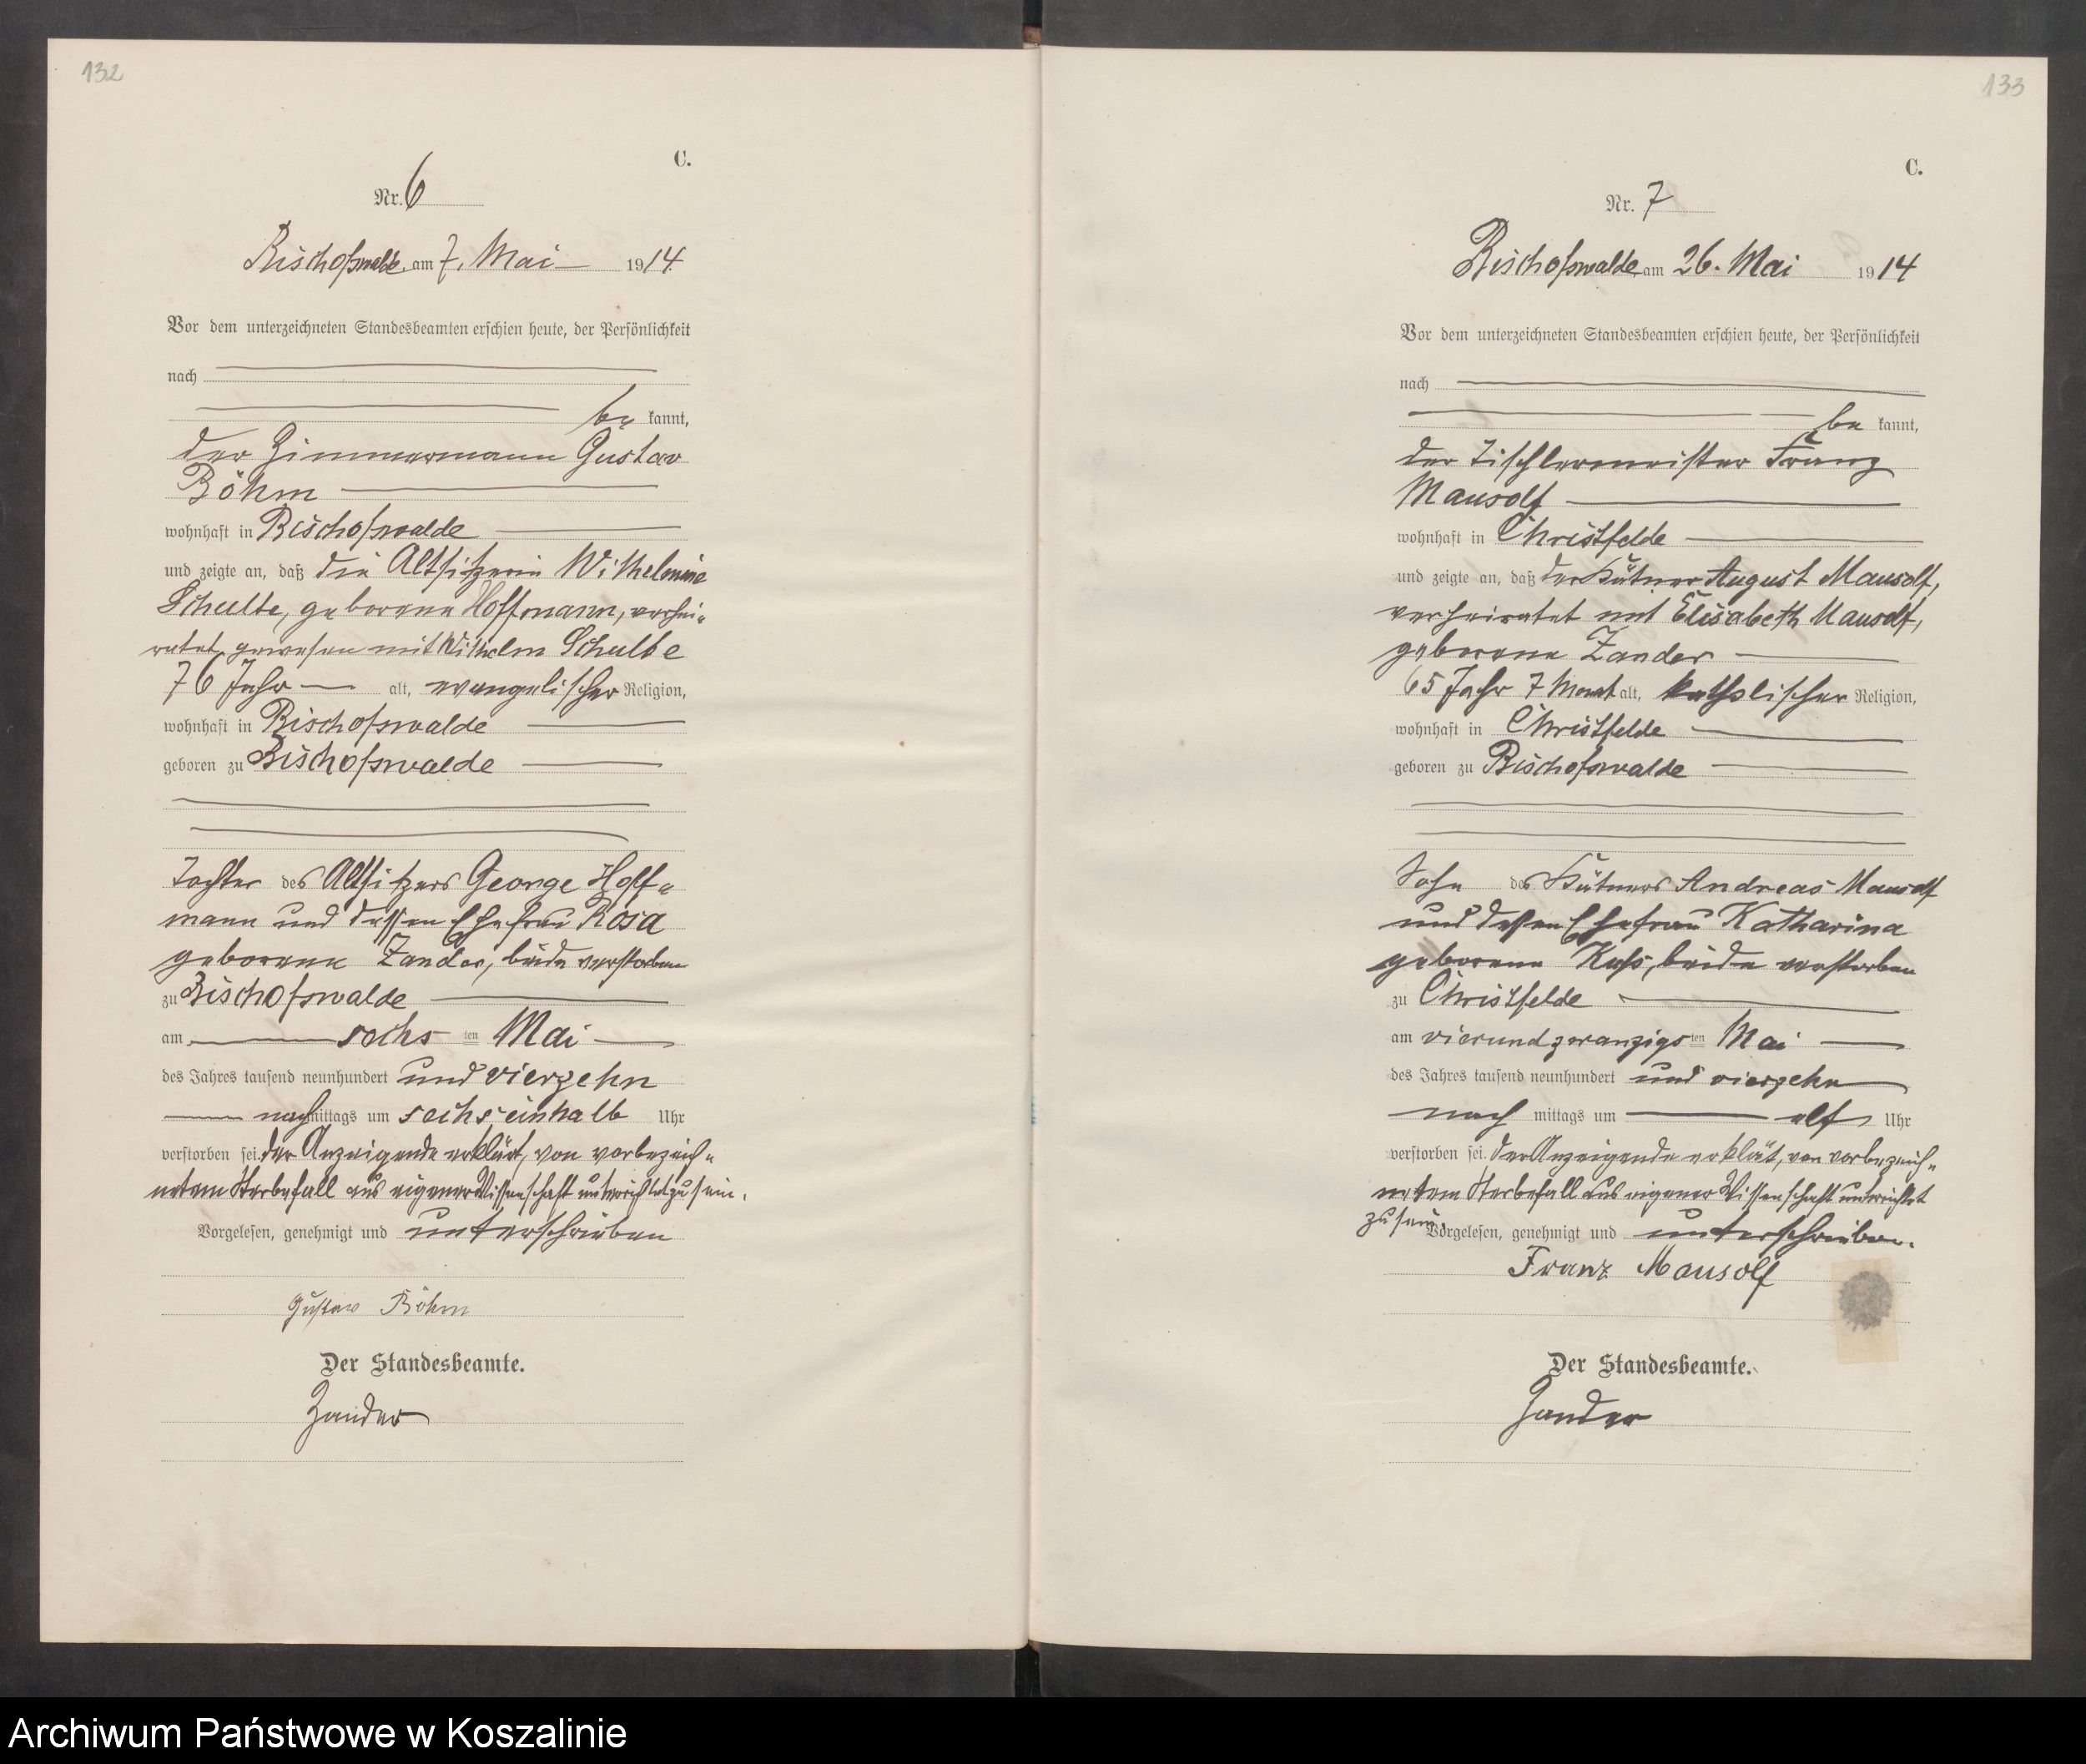 132
C.
Nr. 6
Bischofswalde, am 7. Mai 1914
Vor dem unterzeichneten Standesbeamten erschien heute, der Persönlichkeit
nach
be kannt,
der Zimmermann Gustav
Böhm
wohnhaft in Bischofswalde
und zeigte an, daß die Altsitzerin Wilhelmine
Schulte, geborene Hoffmann, verhei-
ratet gewesen mit Wilhelm Schulte
76 Jahr alt, evangelischer Religion,
wohnhaft in Bischofswalde
geboren zu Bischofswalde
Tochter des Altsitzers George Hoff-
mann und dessen Ehefrau Rosa
geborene Zander, beide verstorben
zu Bischofswalde
am sechsten Mai
des Jahres tausend neunhundert und vierzehn
nachmittags um sechseinhalb Uhr
verstorben sei. Der Anzeigende erklärt, von vorbezeich-
netem Sterbefall aus eigener Wissenschaft unterrichtet zu sein.
Vorgelesen, genehmigt und unterschrieben
Gustav Böhm
Der Standesbeamte.
Zander
133
C.
Nr. 7
Bischofswalde am 26. Mai 1914
Vor dem unterzeichneten Standesbeamten erschien heute, der Persönlichkeit
nach
be kannt,
der Tischlermeister Franz
Mausolf
wohnhaft in Christfelde
und zeigte an, daß der Kätner August Mausolf,
verheiratet mit Elisabeth Mausolf,
geborene Zander
65 Jahr 7 Monat alt, katholischer Religion,
wohnhaft in Christfelde
geboren zu Bischofswalde
Sohn des Kätners Andreas Mausolf
und dessen Ehefrau Katharina
geborene Kuss, beide verstorben
zu Christfelde
am vierundzwanzigsten Mai
des Jahres tausend neunhundert und vierzehn
nach mittags um elf Uhr
verstorben sei. Der Anzeigende erklärt, von vorbezeich-
netem Sterbefall aus eigener Wissenschaft unterrichtet
zu sein.
Vorgelesen, genehmigt und unterschrieben.
Franz Mausolf
Der Standesbeamte.
Zander
Archiwum Państwowe w Koszalinie